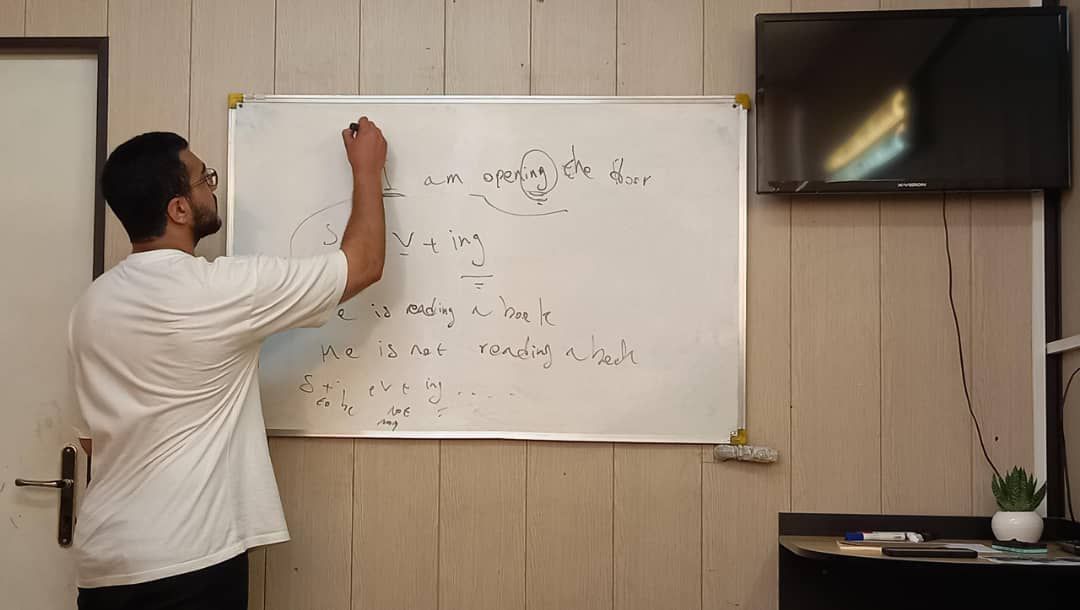 I am opening the door
S V + ing
e is reading a book
He is not reading a book
S + ing ....
to be not
X.VISION